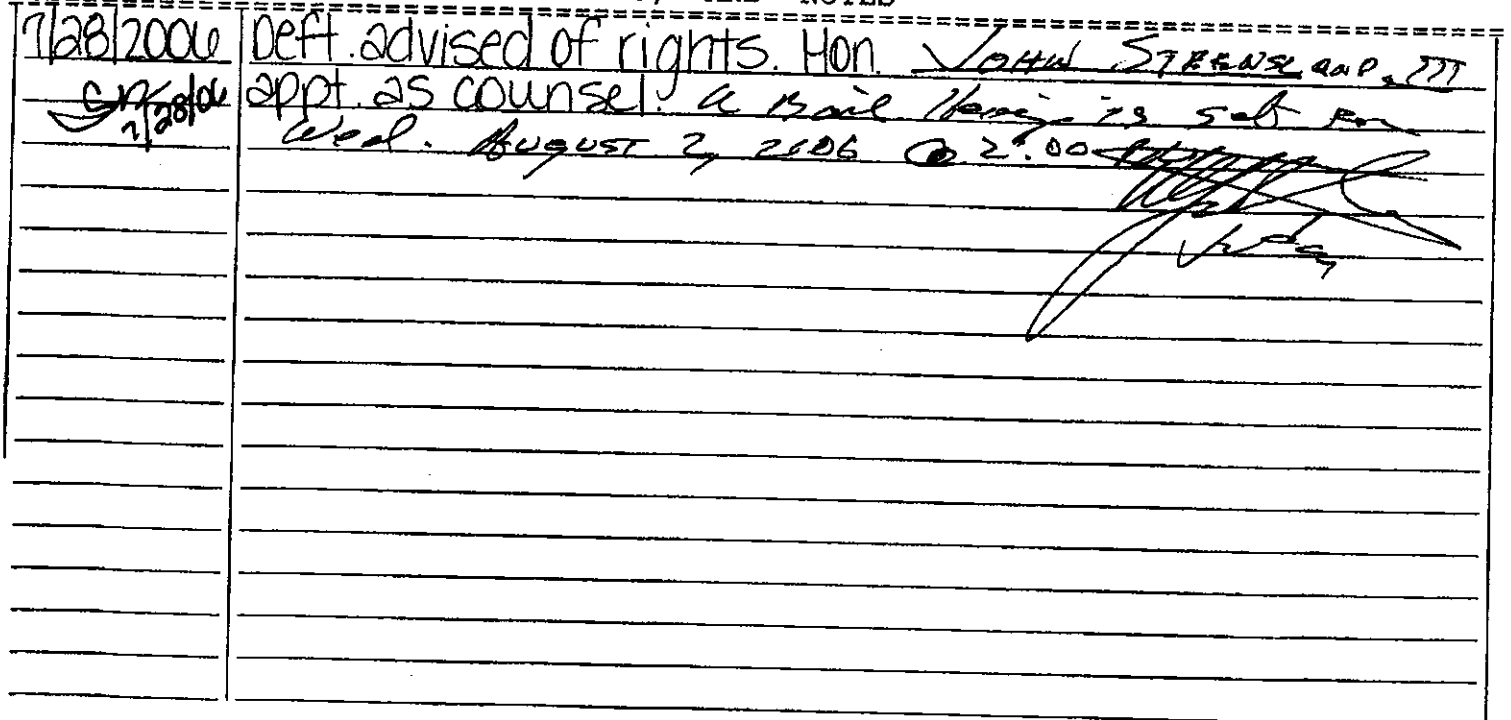 NOTES
7/28/2006 Deft. advised of rights. Hon. JOHN STEENSLAND, III
7/28/06 appt. as counsel. A Bail Hearing is set for
Wed. August 2, 2006 @ 2:00
Judge